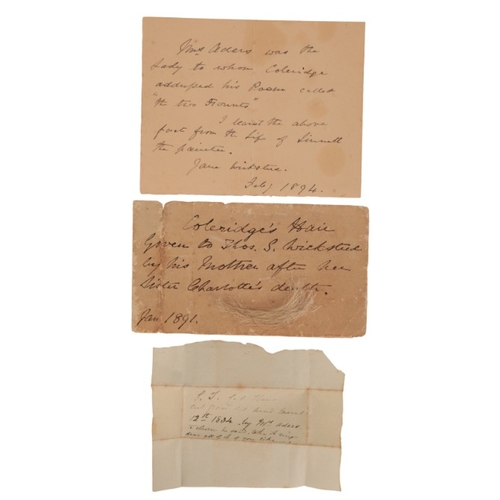 Mrs Aders was the
lady to whom Coleridge
addressed his Poem called
"the two Founts"
I learnt the above
fact from the life of Linnell
the painter.
Jane Wicksteed.
Feby 1894.
Coleridge's Hair
Given to Thos. S. Wicksteed
by his Mother after her
Sister Charlotte's death.
Jan. 1891.
S. T.
12th 1834 by Mrs Aders